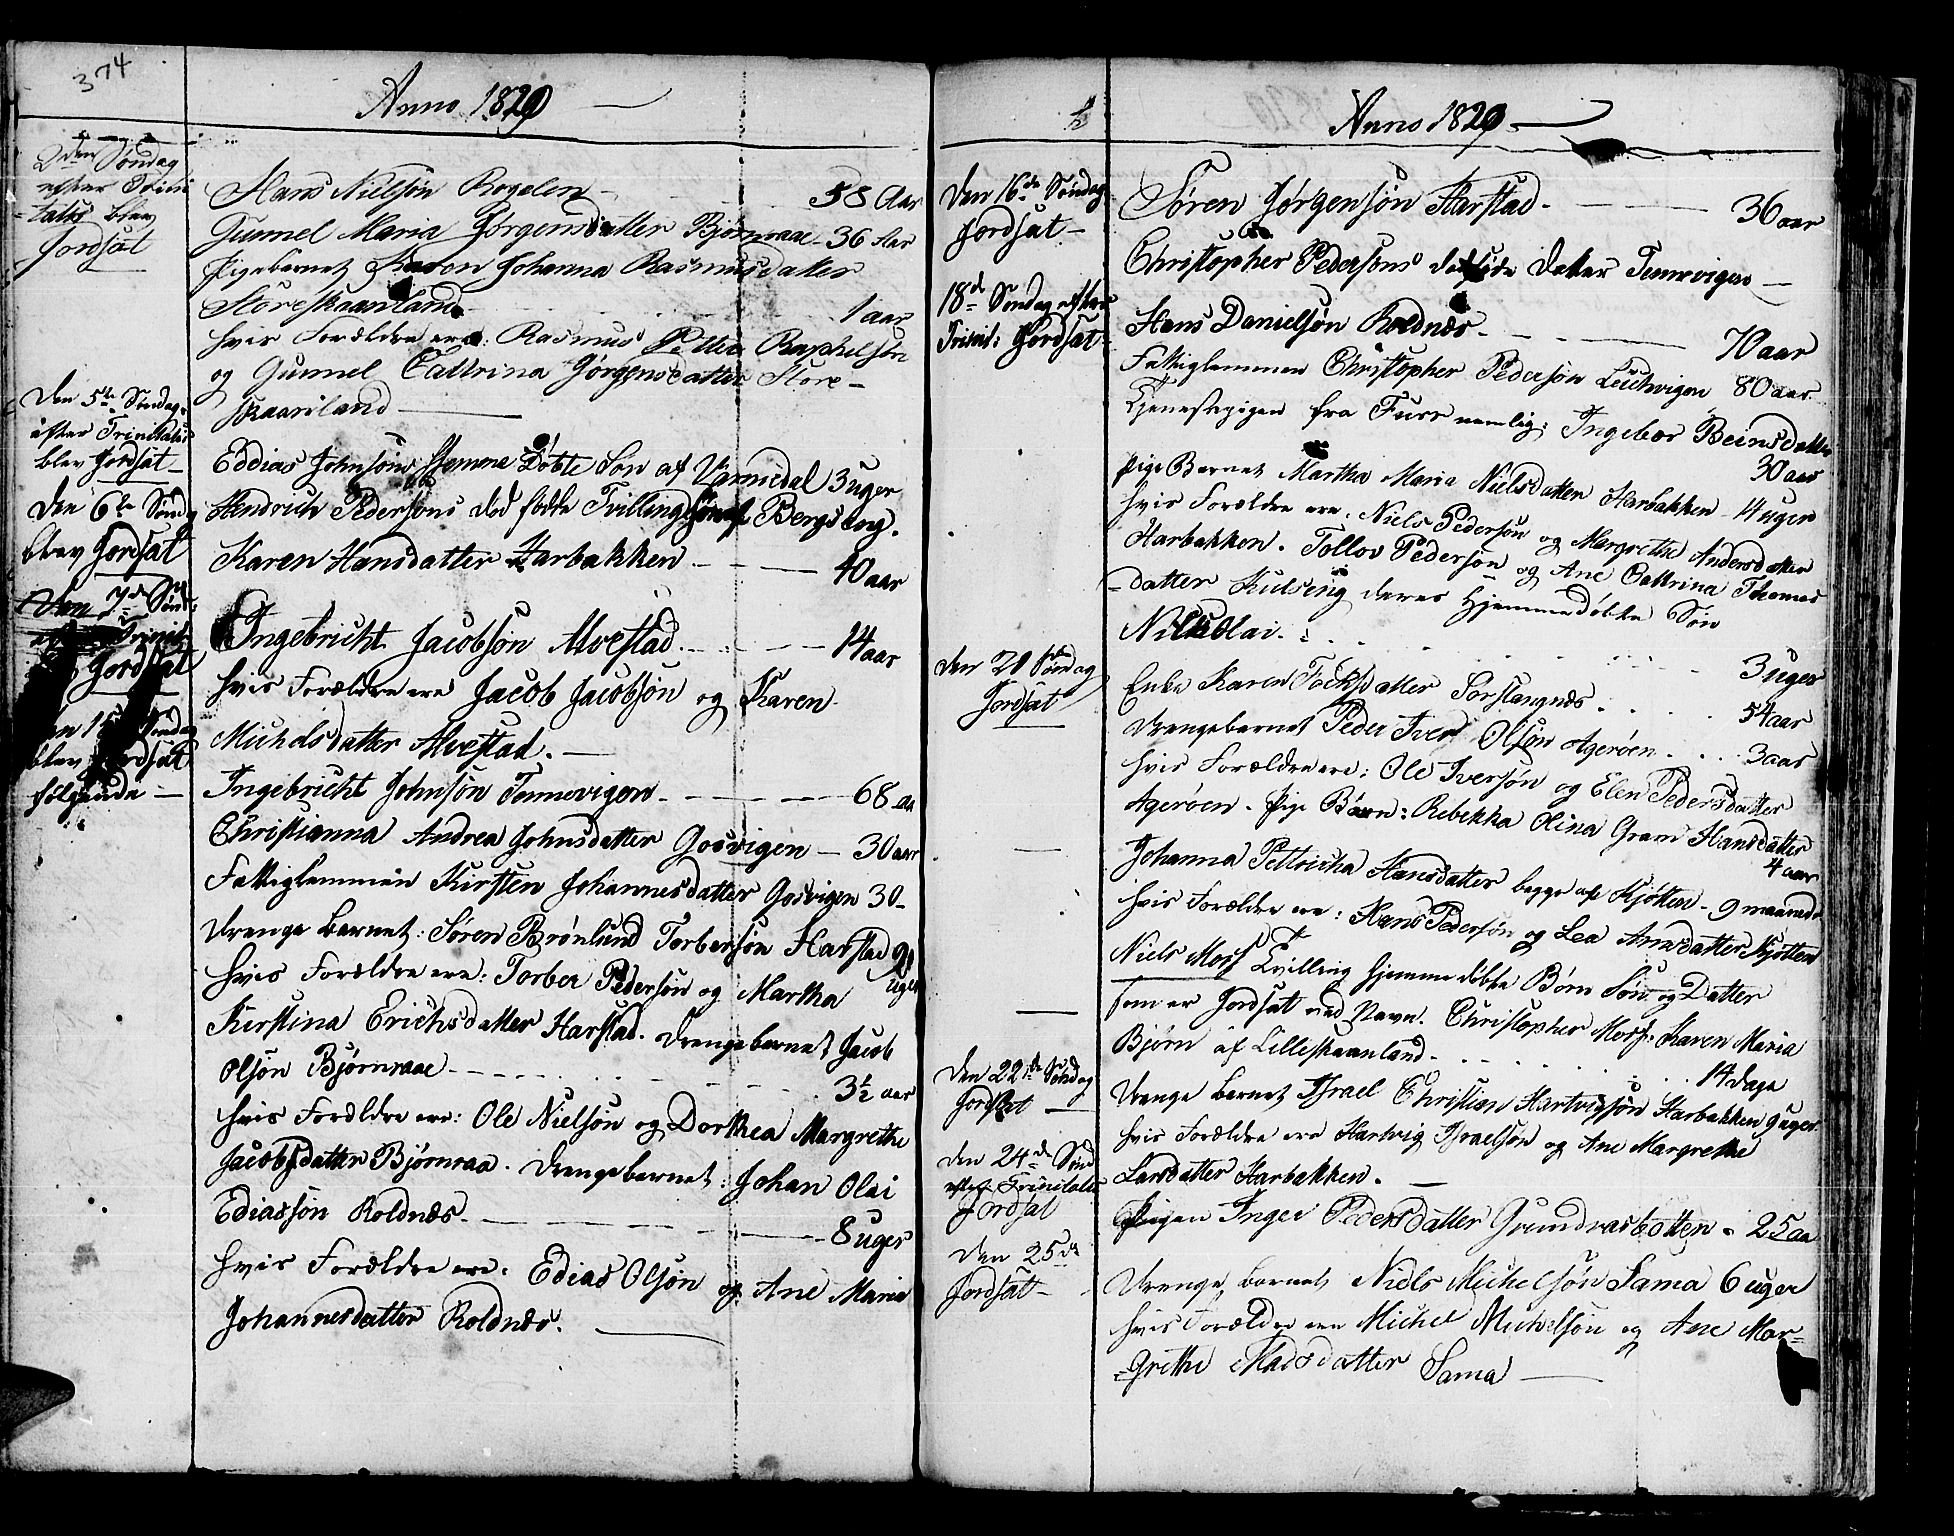 374
Anno 1829
2den Søndag
efter Trini
tatis blev
Jordsat
Hans Nielsøn Rogelen 58 Aar
Gunnel Maria Jørgensdatter Bjørnraae 36 Aar
Pigebarnet Karen Johanna Rasmusdatter
Storeskaanland 1 aar
hvis Forældre ere: Rasmus Petter Raphelsøn
og Gunnel Cattrina Jørgensdatter Store-
skaanland
Den 5te Søndag
efter Trinitatis
blev Jordsat
Eddias Johnsøns Hjemme Døbte Søn af Vamedal 3 uger
Den 6te Sønd
blev Jordsat
Hendrich Pedersøns død fødte Tvilling Søn af Bergseng.
Karen Hansdatter Harbakken 40 aar
Den 7de Sønd:
Trinit
Jordsat
Ingebricht Jacobsøn Alvestad 14 aar
hvis Forældre ere Jacob Jacobsøn og Karen
Michelsdatter Alvestad.
blev Jordsat
følgende
Ingebricht Johnsøn Tennevigen 68 aa
Christianna Andrea Johnsdatter Gosvigen 30 aar
Fattiglemmen Kirsten Johannesdatter Gosvigen 30
Drenge barnet: Søren Brønlund Torbersøn Harstad 9
uger
hvis Forældre ere: Torber Pedersøn og Martha
Kirstina Erichsdatter Harstad. Drengebarnet Jacob
Olsøn Bjørnraae 3½ aar
hvis Forældre ere: Ole Nielsøn og Dorthea Margrethe
Jacobsdatter Bjørnraa. Drengebarnet: Johan Olai
Ediassøn Roldnæs 8 uger
hvis Forældre ere: Edias Olsøn og Ane Maria
Johannesdatter Roldnæs.
Anno 1829
Den 16de Søndag
Jordsat
Søren Jørgensøn Harstad 36 aar
Christopher Pedersøns dødføde Datter Tennevigen
18de Søndag efter
Trinit: Jordsat
Hans Danielsøn Roldnæs 70 aar
Fattiglemmen Christopher Pedersøn Leichvigen 80 aar
Tjenestepigen fra Furr nemlig: Ingebor Beinsdatter
30 aar
Pige Barnet Martha Maria Nielsdatter Harbakken 14 uger
hvis Forældre ere: Niels Pedersøn og Margrethe Andersdatter
Harbakken. Tollov Pedersøn og Ane Cattrina Thomas
datter Kulseng deres Hjemmedøbte Søn
Nickolai 3 uger
Den 20de Søndag
Jordsat
Enke Karen Focksdatter Sørslangnæs 54 aar
Drengebarnet Peder Iver Olsøn Agerøen 3 aar
hvis Forældre ere: Ole Iversøn og Elen Pedersdatter
Agerøen. Pige Børn: Rebekka Olina Gram Hansdatter
4 aar
Johanna Pettricka Hansdatter begge af Kjøtten 9 maaneder
hvis Forældre ere: Hans Pedersøn og Lea Arnsdatter Kjøtten
Niels Mors Tvilling hjemme døbte Børn Søn og Datter
som er Jordsat ved Navn. Christopher Mors: Karen Maria
Bjørn af Lilleskaanland 14 dage
Den 22de Søndag
Jordsat
Drenge barnet Israel Christian Hartvigsøn Harbakken 9 uger
hvis Forældre ere Hartvig Israelsøn og Ane Margrethe
Larsdatter Harbakken.
Den 24de Sønd
efter Trinitatis
Jordsat
Pigen Inger Pedersdatter Grundnasbotten 25 aa
Den 25de
Jordsat
Drenge barnet Niels Michelsøn Sama 6 uger
hvis Forældre ere Michel Michelsøn og Ane Mar-
grethe Madsdatter Sama